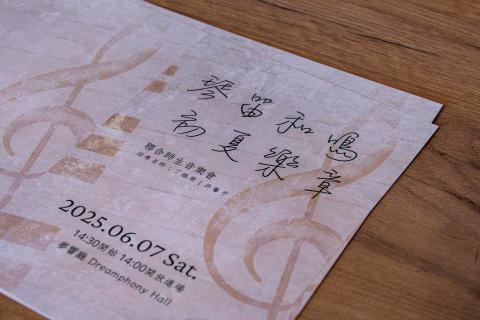 琴笛和鳴
初夏樂章
聯合師生音樂會
指導老師：丁
2025.06.07 Sat.
14:30開始 14:00開放進場
夢響廳 Dreamphony Hall